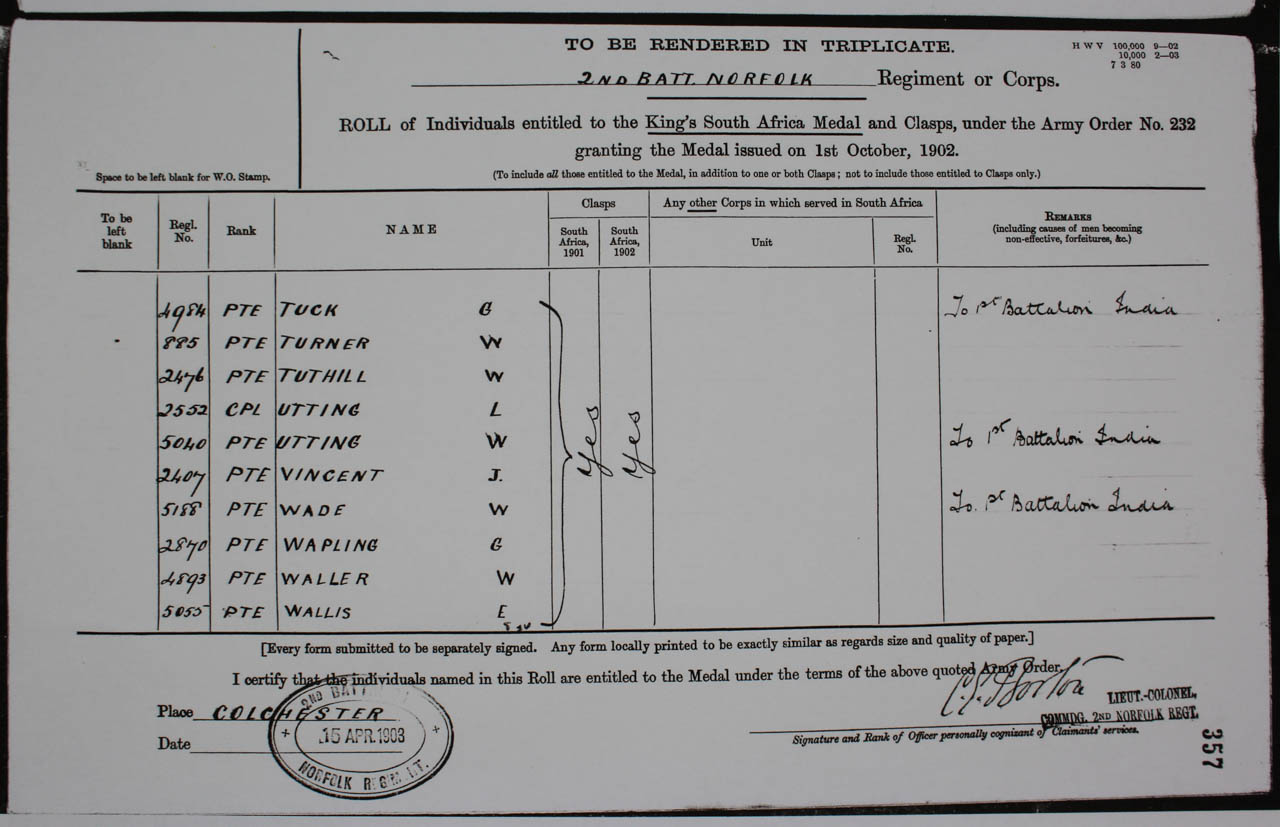 TO BE RENDERED IN TRIPLICATE.
H W V 100,000 9—02
10,000 2—03
7 3 80
2ND BATT. NORFOLK Regiment or Corps.
ROLL of Individuals entitled to the King's South Africa Medal and Clasps, under the Army Order No. 232
granting the Medal issued on 1st October, 1902.
(To include all those entitled to the Medal, in addition to one or both Clasps; not to include those entitled to Clasps only.)
Space to be left blank for W.O. Stamp.
To be left blank
Regl. No.
Rank
NAME
Clasps
South Africa, 1901
South Africa, 1902
Any other Corps in which served in South Africa
Unit
Regl. No.
REMARKS
(including causes of men becoming non-effective, forfeitures, &c.)
4984 PTE TUCK G To 1st Battalion India
885 PTE TURNER W
2476 PTE TUTHILL W
2552 CPL UTTING L
Yes Yes
5040 PTE UTTING W To 1st Battalion India
2407 PTE VINCENT J.
5188 PTE WADE W To. 1st Battalion India
2870 PTE WAPLING G
4893 PTE WALLER W
5055 PTE WALLIS E
[Every form submitted to be separately signed. Any form locally printed to be exactly similar as regards size and quality of paper.]
I certify that the individuals named in this Roll are entitled to the Medal under the terms of the above quoted Army Order.
Place COLCHESTER
Date
2ND BATT
15 APR. 1903
NORFOLK REGIMENT.
LIEUT.-COLONEL,
COMMDG. 2ND NORFOLK REGT.
Signature and Rank of Officer personally cognizant of Claimants' services.
357